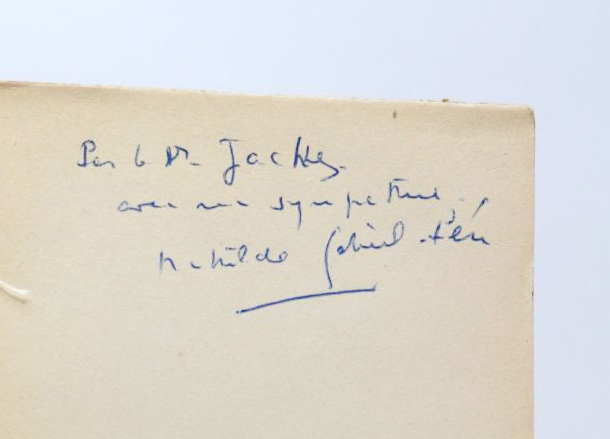 Pour le Dr
avec ma sympathie,
Mathilde Gabriel-Péri